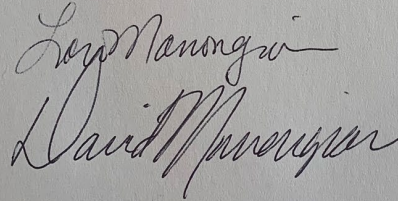 Lori Manongian
David Manongian